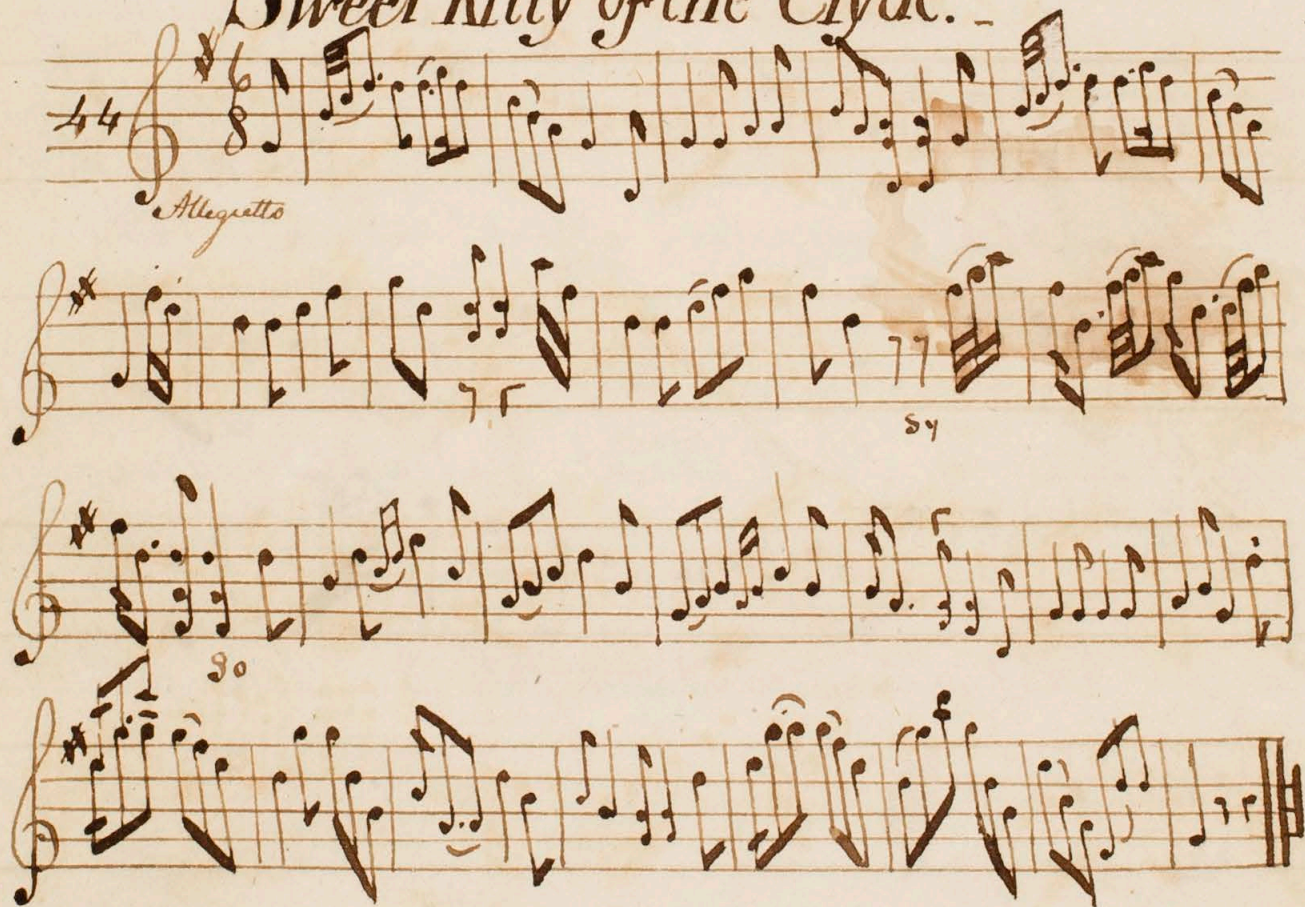 Sweet Kitty of the Clyde.
44
6
8
Allegretto
Sy